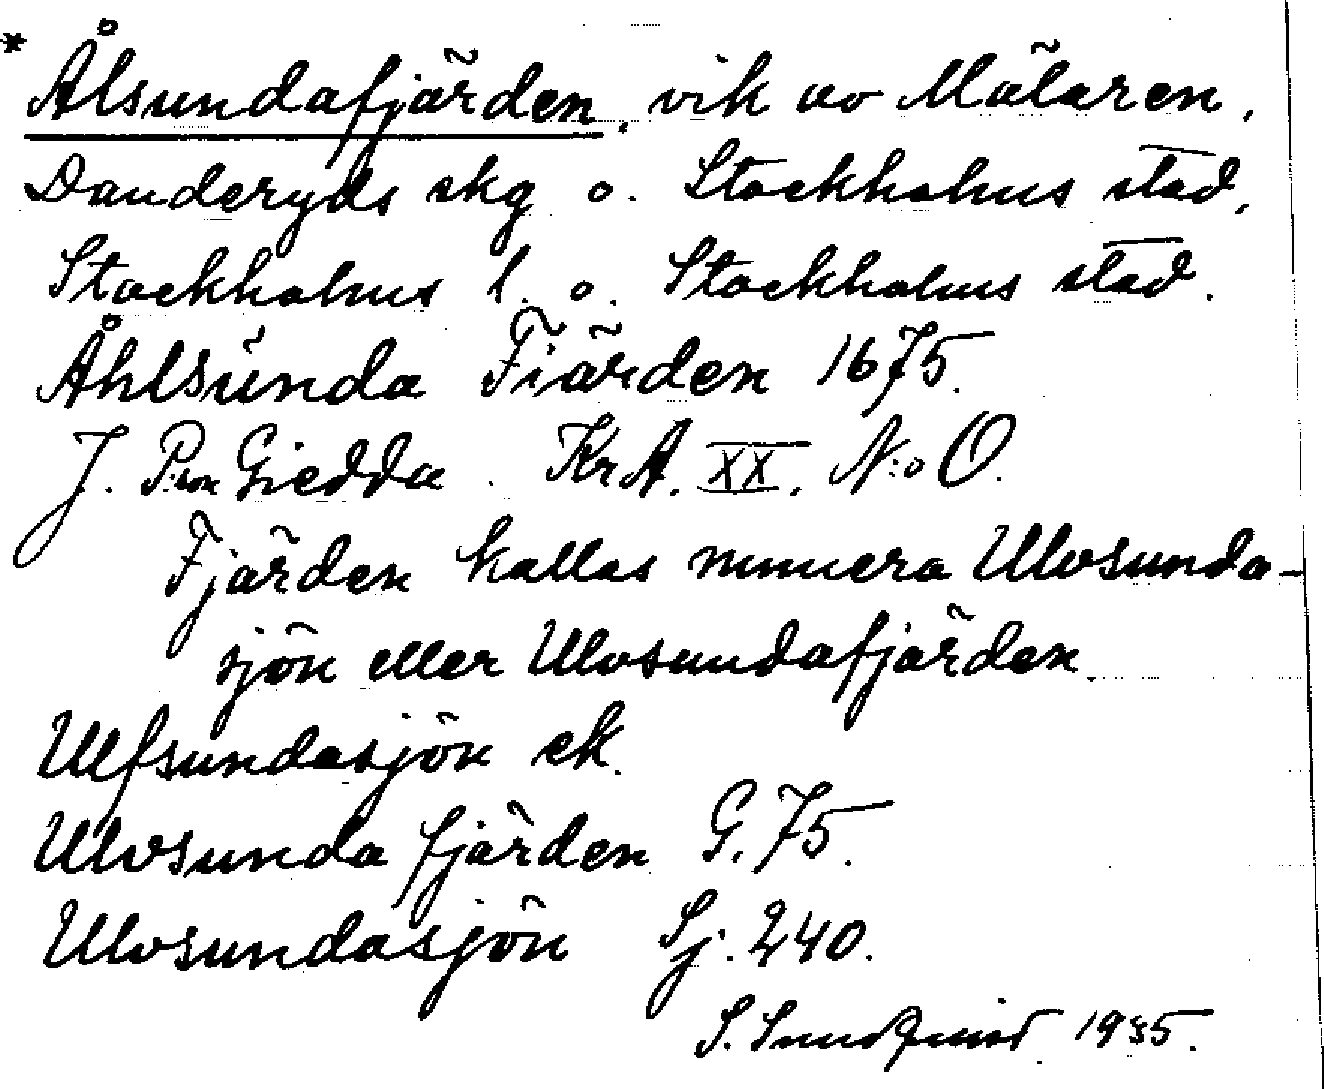 * Ålsundafjärden, vik av Mälaren,
Danderyds skg o. Stockholms stad,
Stockholms l. o. Stockholms stad.
Åhlsúnda Fiärden 1675.
J. P:son Giedda. KrA. XX. N:o O.
Fjärden kallas numera Ulvsunda-
sjön eller Ulvsundafjärden.
Ulfsundasjön ek.
Ulvsunda fjärden G. 75.
Ulvsundasjön Sj. 240.
S. Sundquist 1935.